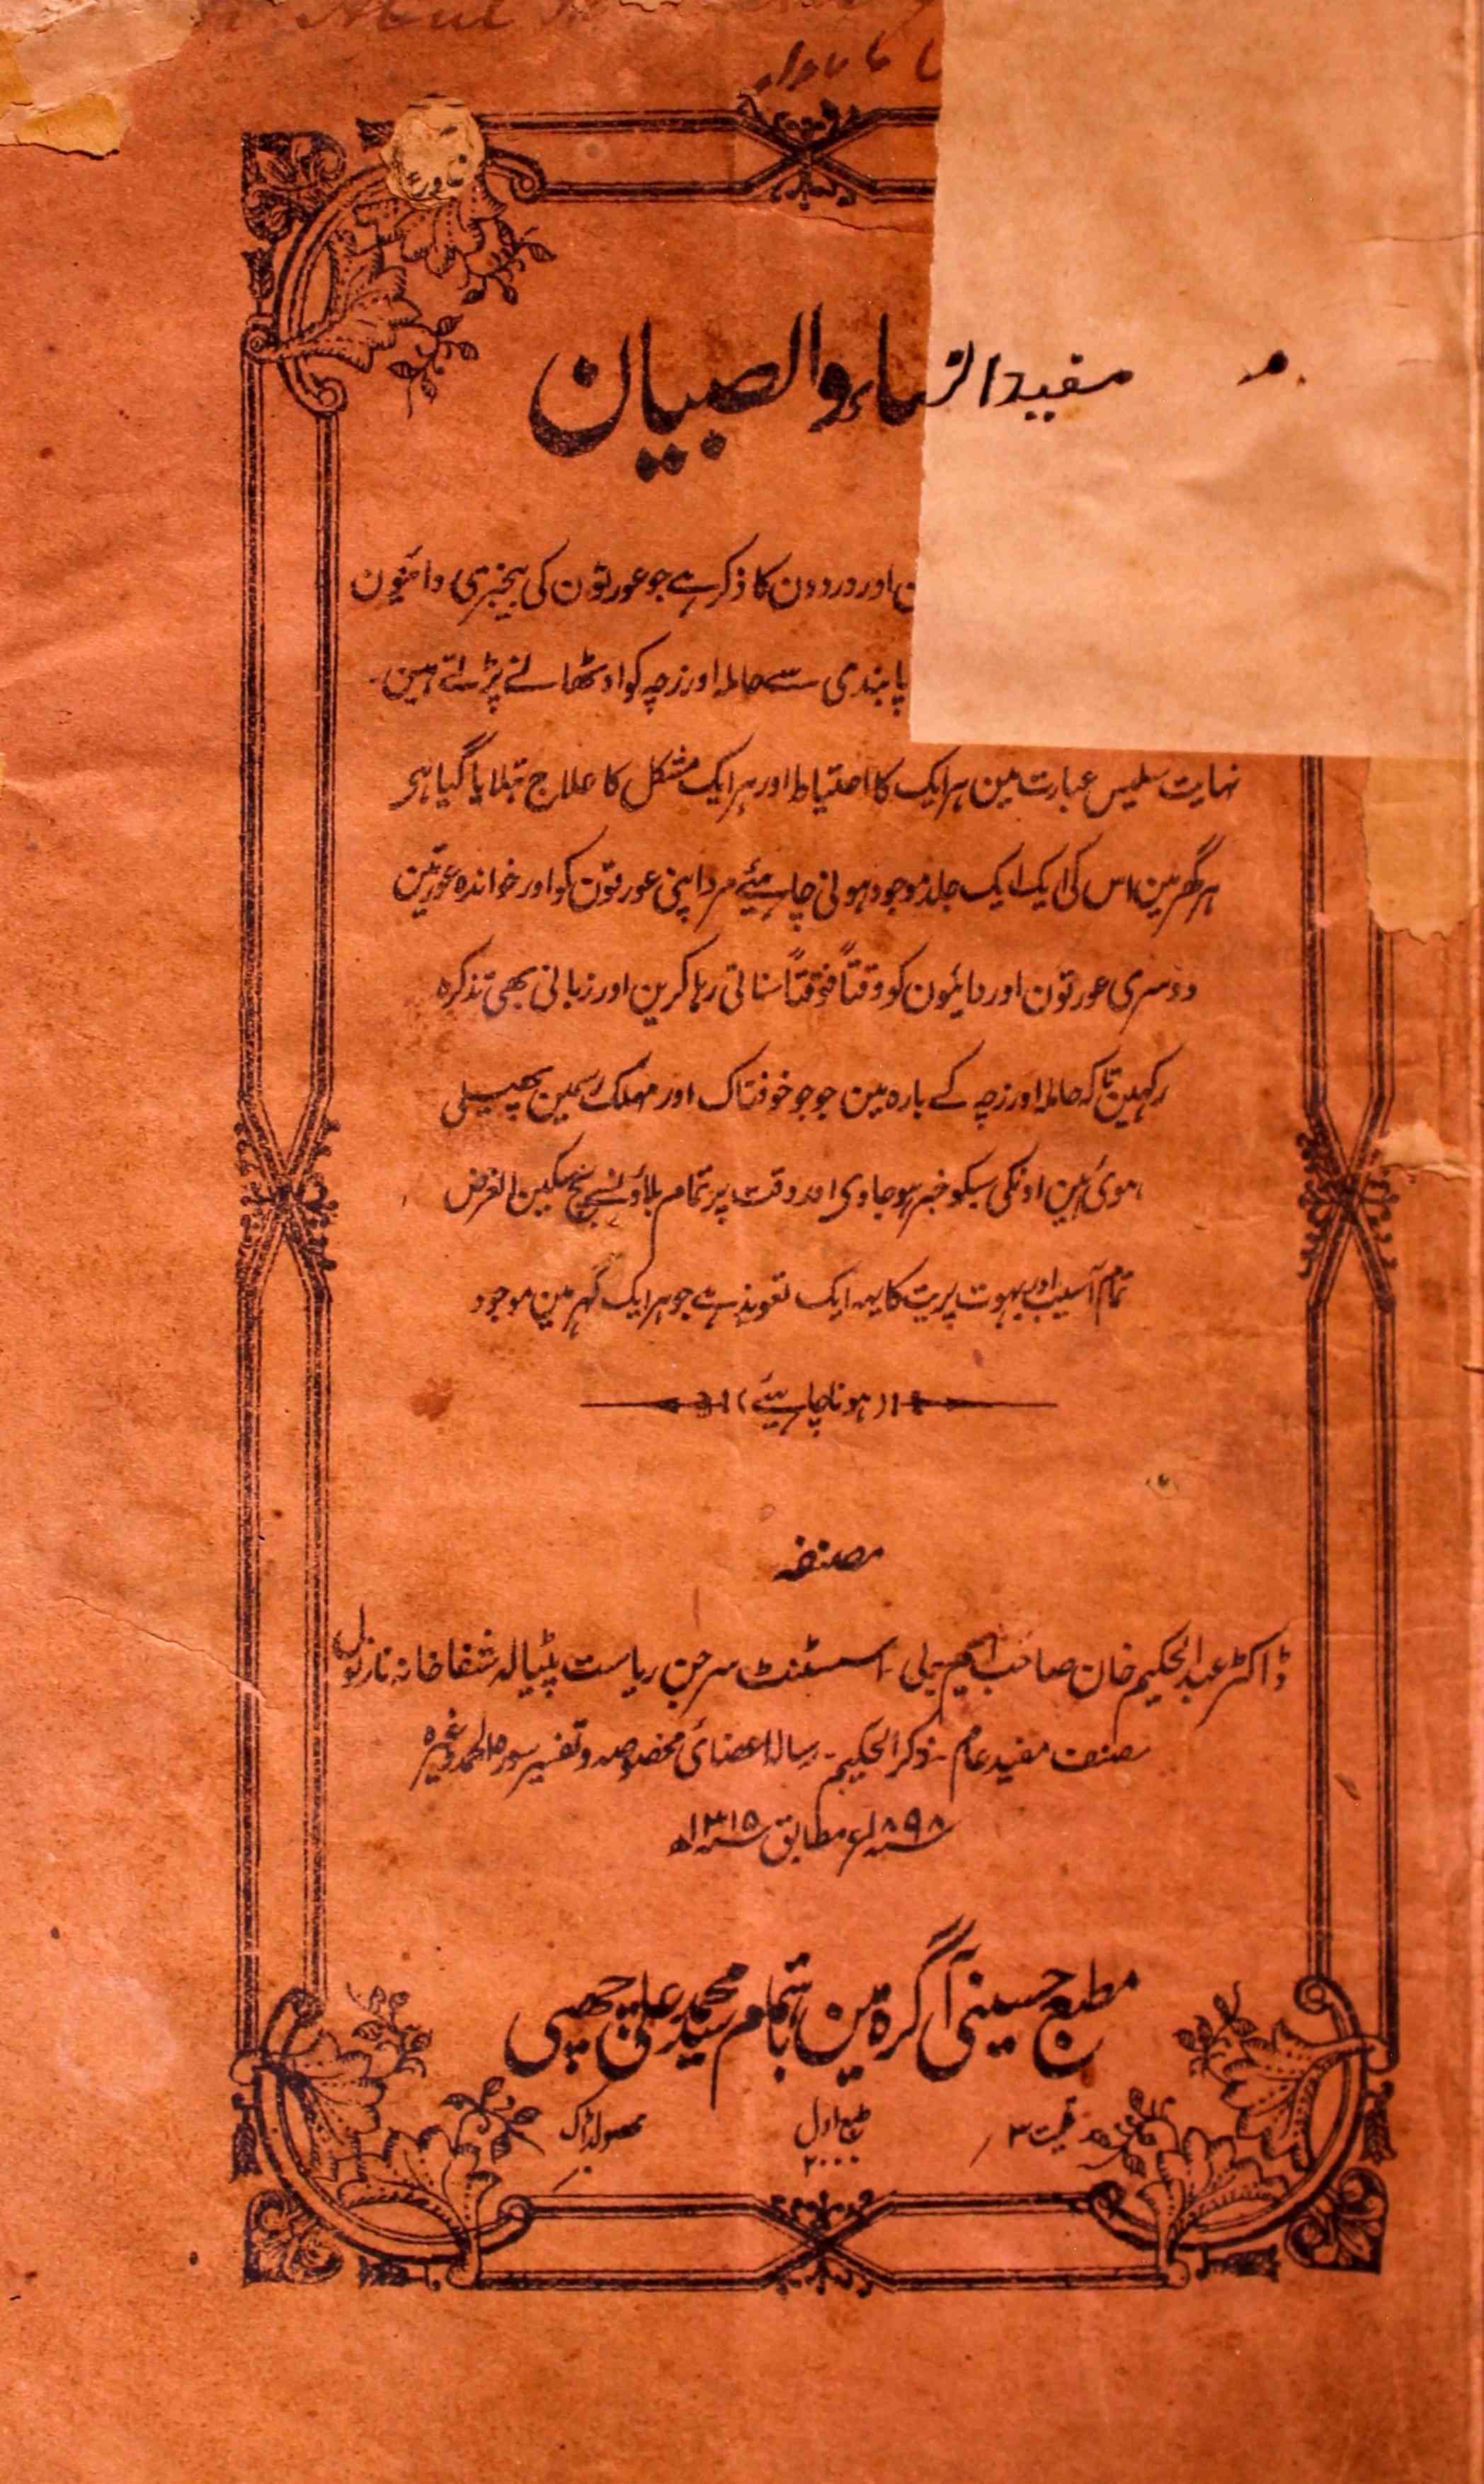 Abul
مفید النساء والصبیان
اور دردون کا ذکر ہے جو عورتون کی بیخبری دائیون
پابندی سے حاملہ اور زچہ کو اوٹھانے پڑتے ہین۔
نہایت سلیس عبارت مین ہر ایک کا احتیاط اور ہر ایک مشکل کا علاج بتلایا گیا ہی
ہر گھر مین اس کی ایک ایک جلد موجود ہونی چاہیئے مرد اپنی عورتون کو اور خواندہ عورتین
دوسری عورتون اور دائیون کو وقتاً فوقتاً سناتی رہا کرین اور زبانی بھی تذکرہ
رکہین تاکہ حاملہ اور زچہ کے بارہ مین جو جو خوفناک اور مہلک رسمین پھیلی
ہوئی ہین اونکی سبکو خبر ہو جاوی اور وقت پر تمام بلاؤنسے بچ سکین الغرض
تمام آسیب اور بہوت پریت کا یہہ ایک تعویذ ہے جو ہر ایک گہر مین موجود
(ہونا چاہیئے)
مصنفہ
ڈاکٹر عبد الحکیم خان صاحب ایم بی اسسٹنٹ سرجن ریاست پٹیالہ شفاخانہ نارنول
مصنف مفید عام ۔ ذکر الحکیم ۔ رسالہ اعضائی مخصوصہ و تفسیر سورہ الحمد وغیرہ
سنہ ۱۸۹۸ء مطابق سنہ ۱۳۱۵ھ
مطبع حسینی آگرہ مین باہتمام سید محمد علی چھپی
قیمت ۳ طبع اول محصولڈاک
۲۰۰۰